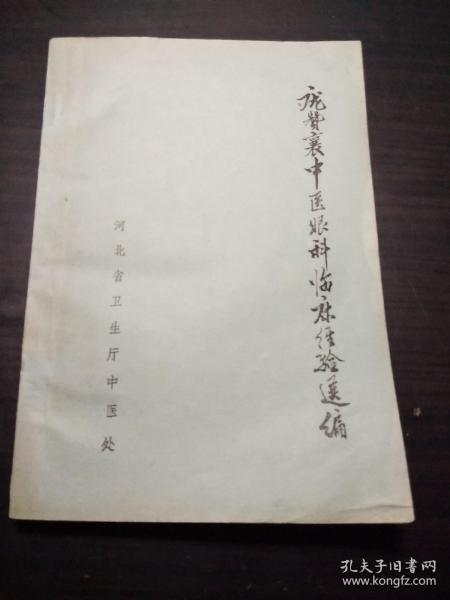 庞赞襄中医眼科临床经验选编
河北省卫生厅中医处
孔夫子旧书网
www.kongfz.com